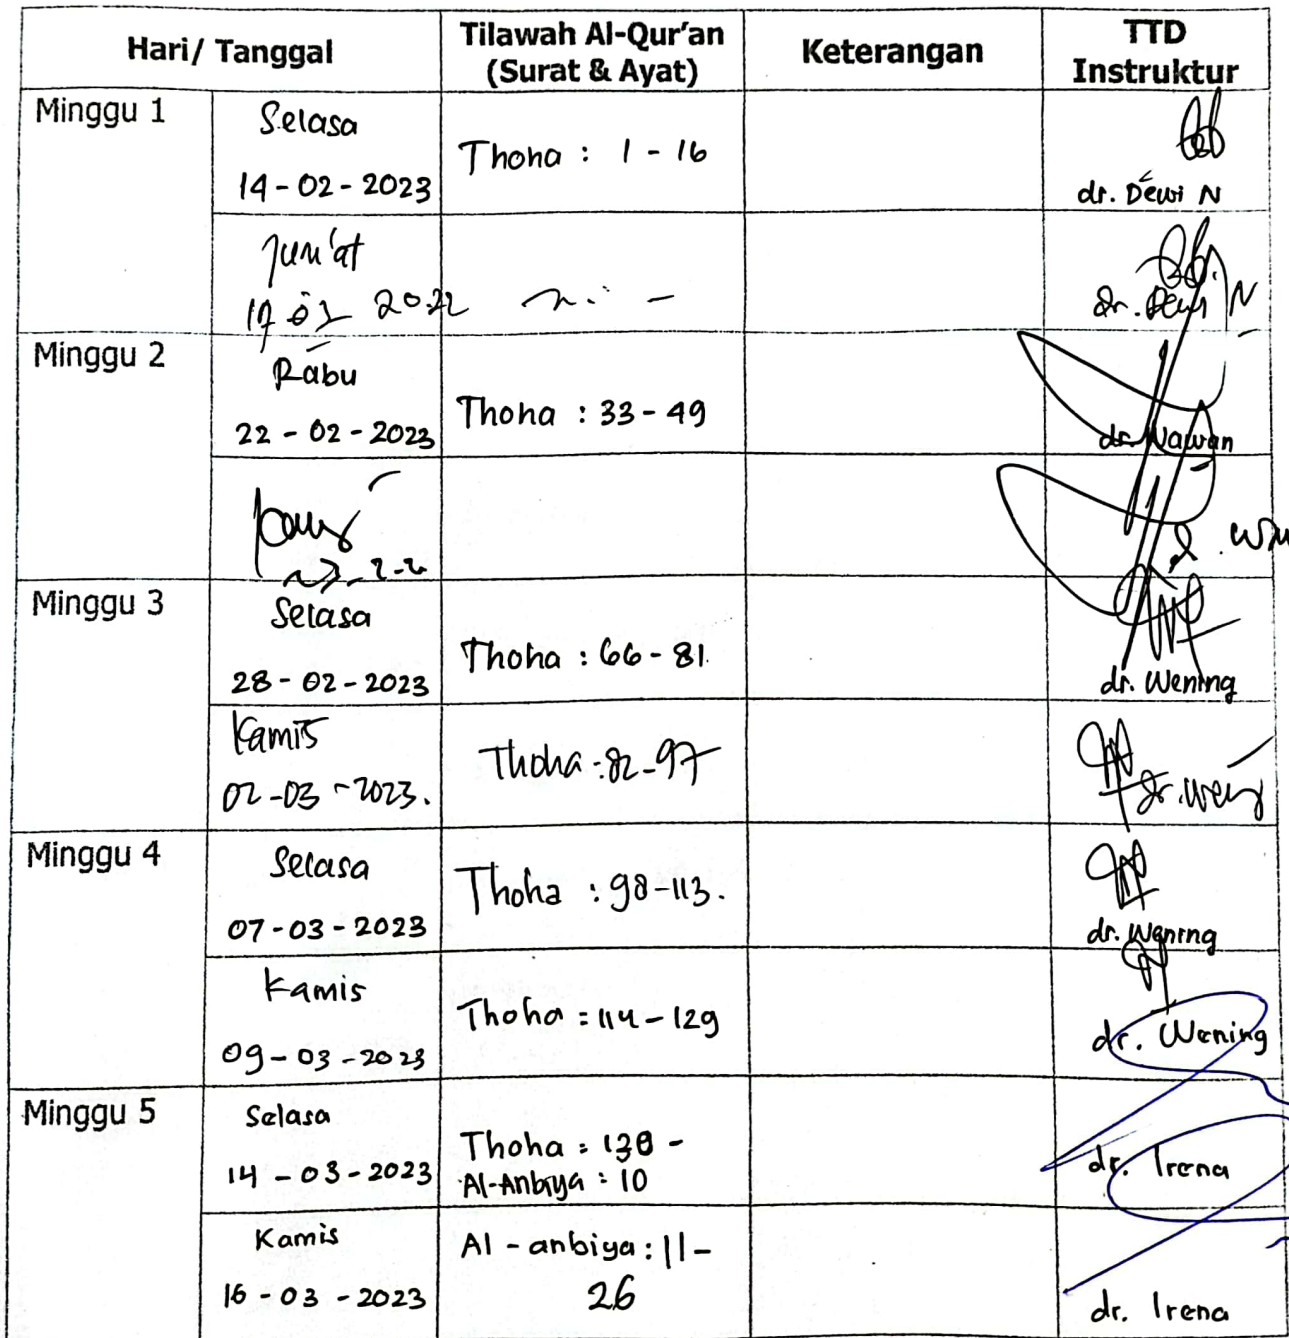 Hari/ Tanggal
Tilawah Al-Qur'an
(Surat & Ayat)
Keterangan
TTD
Instruktur
Minggu 1
Selasa
14-02-2023
Thoha : 1 - 16
dr. Dewi N
Jum'at
dr. Dewi N
Minggu 2
Rabu
22-02-2023
Thoha : 33 - 49
dr. Wawan
Minggu 3
Selasa
28-02-2023
Thoha : 66 - 81
dr. Wening
Kamis
02-03-2023.
Thoha : 82-97
dr. Wening
Minggu 4
Selasa
07-03-2023
Thoha : 98-113.
dr. Wening
Kamis
09-03-2023
Thoha : 114 - 129
dr. Wening
Minggu 5
Selasa
14-03-2023
Thoha : 130 -
Al-Anbiya : 10
dr. Irena
Kamis
16-03-2023
Al-anbiya : 11-
26
dr. Irena